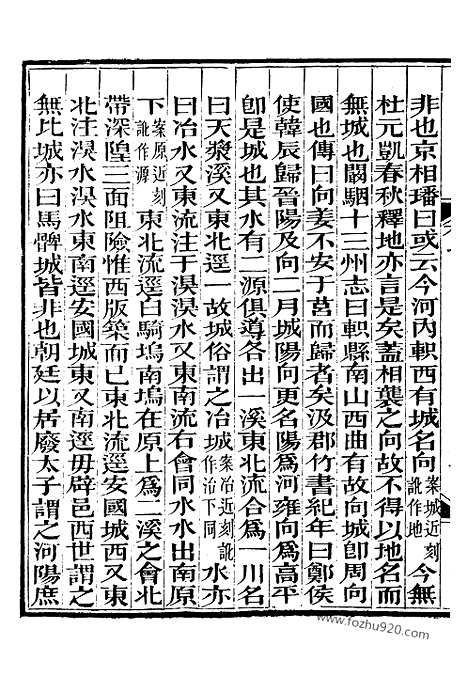 非也京相璠曰或云今河內軹西有城名向案城近刻訛作地今無
杜元凱春秋釋地亦言是矣蓋相襲之向故不得以地名而
無城也闞駰十三州志曰軹縣南山西曲有故向城卽周向
國也傳曰向姜不安于莒而歸者矣汲郡竹書紀年曰鄭侯
使韓辰歸晉陽及向二月城陽向更名陽爲河雍向爲高平
卽是城也其水有二源俱導各出一溪東北流合爲一川名
曰天漿溪又東北逕一故城俗謂之冶城案冶近刻訛作治下同水亦
曰冶水又東流注于湨湨水又東南流右會同水水出南原
下案原近刻訛作源東北流逕白騎塢南塢在原上爲二溪之會北
帶深隍三面阻險惟西版築而已東北流逕安國城西又東
北注湨水湨水東南逕安國城東又南逕毋辟邑西世謂之
無比城亦曰馬髀城皆非也朝廷以居廢太子謂之河陽庶
www.fozhu920.com